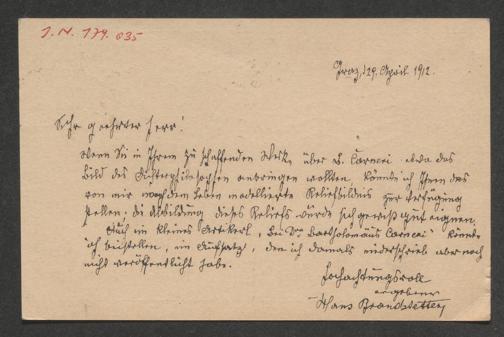 J. N. 179.035
Graz, 29. April 1912
Sehr geehrter Herr!
Wenn Sie in Ihrem zu schaffenden Werke über B. Carneri etwa das
Bild des Dichterphilosophen anbringen wollten, könnte ich Ihnen das
von mir nach dem Leben modellierte Reliefbildnis zur Verfügung
stellen; die Abbildung dieses Reliefs würde sich gewiß gut eignen.
Auch ein kleines Artikerl, "Bei Bartholomäus Carneri" könnte
ich beistellen, ein Aufsatz, den ich damals niederschrieb aber noch
nicht veröffentlicht habe.
Hochachtungsvoll
ergebener
Hans Brandstetter